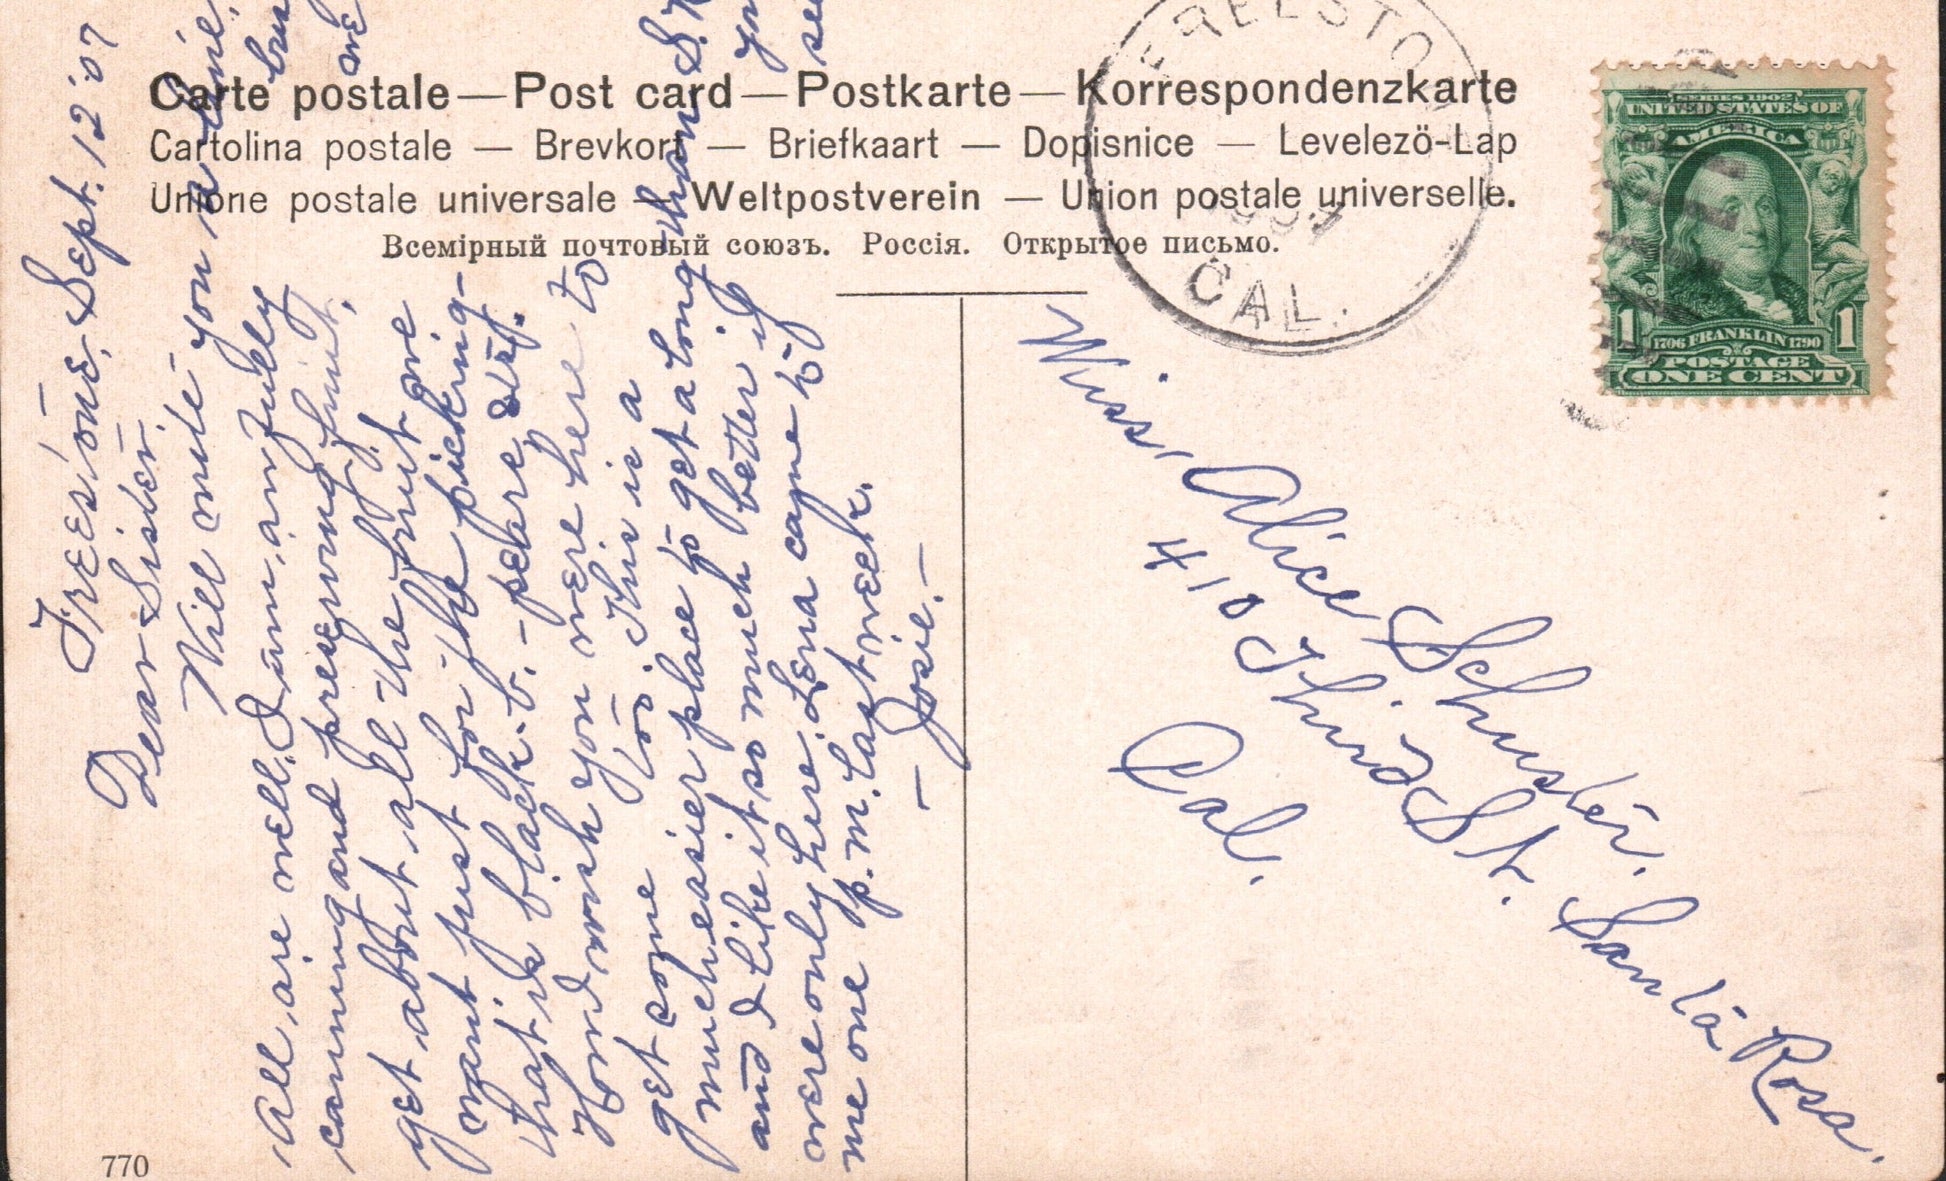 Carte postale — Post card — Postkarte — Korrespondenzkarte
Cartolina postale — Brevkort — Briefkaart — Dopisnice — Levelezö-Lap
Unione postale universale — Weltpostverein — Union postale universelle.
Всемірный почтовый союзъ. Россія. Открытое письмо.
FREESTO
CAL.
SERIES 1902
UNITED STATES OF
AMERICA
1 1
1706 FRANKLIN 1790
POSTAGE
ONE CENT
Freestone, Sept. 12 '07
Dear Sister.
Will write you a line.
All are well, I am, awfully bus
canning and preserving fruit, we
get about all the fruit we
want just for the picking -
that is black-b. - pears etc.
How I wish you were here to
get some too. This is a
much easier place to get along than S. R
and I like it so much better if you
were only here. Lena came to see
me one p. m. last week.
— Josie. —
Miss Alice Schuster.
410 Third St. Santa Rosa.
Cal.
770